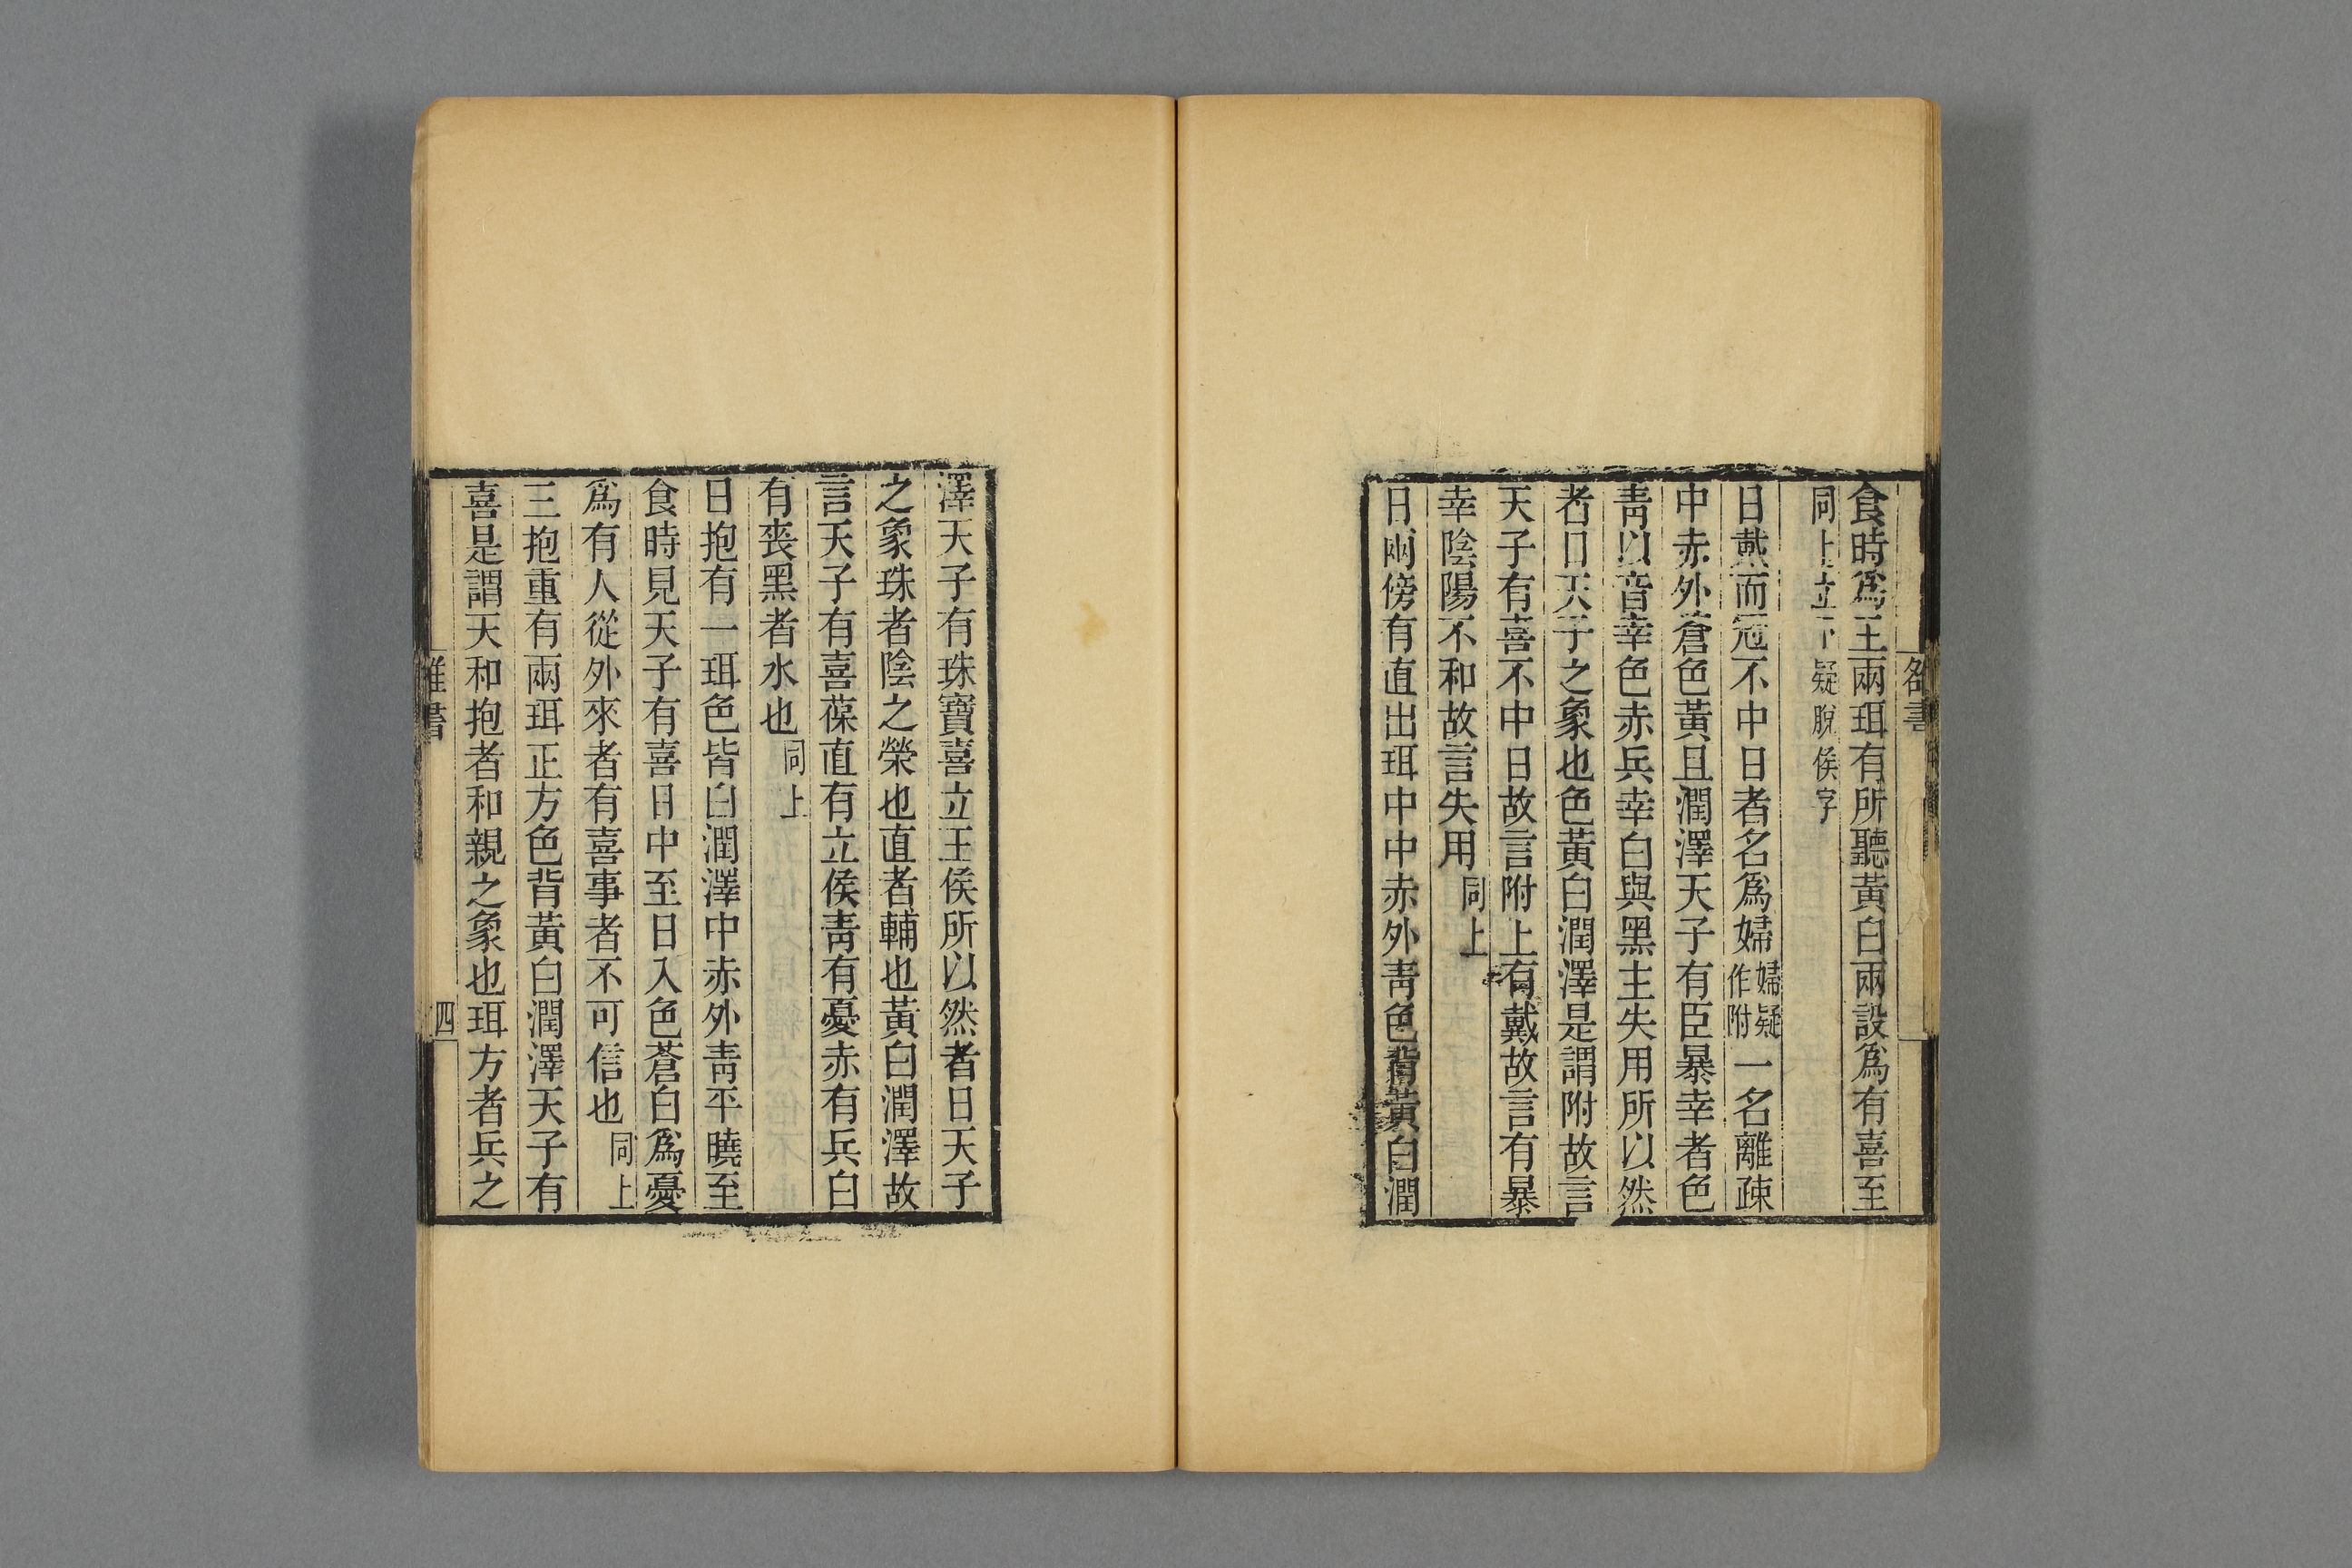 食時爲王兩珥有所聽黃白兩設爲有喜至
同上立下疑脫侯字
日戴而冠不中日者名爲婦婦疑作附一名離疎
中赤外蒼色黃且潤澤天子有臣暴幸者色
靑以音幸色赤兵幸白與黑主失用所以然
者日天子之象也色黃白潤澤是謂附故言
天子有喜不中日故言附上有戴故言有暴
幸陰陽不和故言失用同上
日兩傍有直出珥中中赤外靑色背黃白潤
澤天子有珠寶喜立王侯所以然者日天子
之象珠者陰之榮也直者輔也黃白潤澤故
言天子有喜葆直有立侯靑有憂赤有兵白
有喪黑者水也同上
日抱有一珥色皆白潤澤中赤外靑平曉至
食時見天子有喜日中至日入色蒼白爲憂
爲有人從外來者有喜事者不可信也同上
三抱重有兩珥正方色背黃白潤澤天子有
喜是謂天和抱者和親之象也珥方者兵之
四